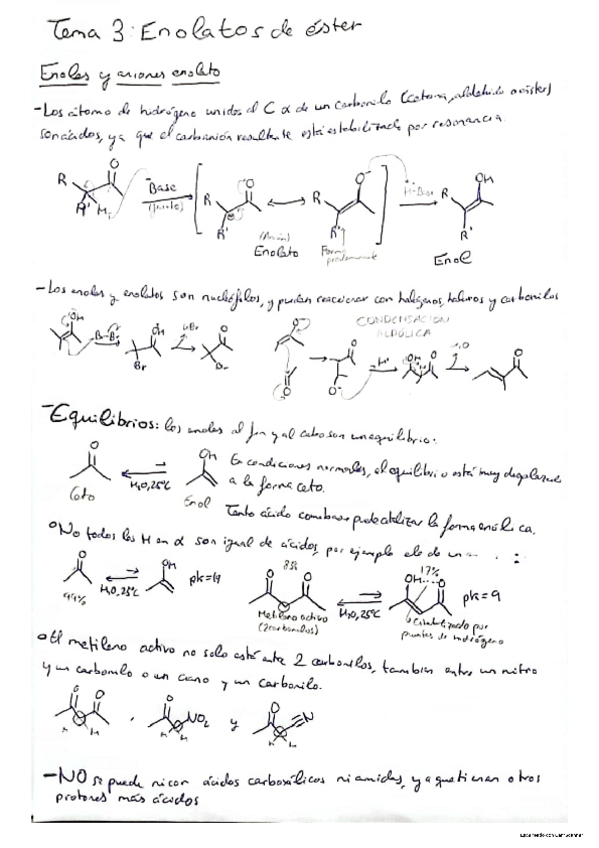 Tema 3: Enolatos de éster
Enoles y aniones enolato
-Los átomo de hidrógeno unidos al C α de un carbonilo (cetona, aldehído o éster)
son ácidos, ya que el carbanión resultante está estabilizado por resonancia.
R O Base O O⁻ H-Base OH
R' H (fuerte) R R R
R' R' R'
(Anión) Enolato Forma predominante Enol
-Los enoles y enolatos son nucleófilos, y pueden reaccionar con halógenos, haluros y carbonilos
CONDENSACION
ALDÓLICA
OH Br-Br OH -HBr O
Br Br
-Equilibrios: los enoles al fin y al cabo son un equilibrio:
O OH En condiciones normales, el equilibrio está muy desplazado
Ceto H₂O, 25°C Enol a la forma ceto.
Tanto ácido como base puede catalizar la forma enólica.
No todos los H en α son igual de ácidos, por ejemplo el de un
O OH pk=19 83% O O 17% OH O pk=9
99% H₂O, 25°C Metileno activo (2 carbonilos) H₂O, 25°C Estabilizado por puentes de hidrógeno
El metileno activo no solo está entre 2 carbonilos, tambien entre un nitro
y un carbonilo o un ciano y un carbonilo.
O O , O NO₂ y O N
H H H H H H
-NO se puede ácidos carboxílicos ni amidas, ya que tienen otros
protones más ácidos